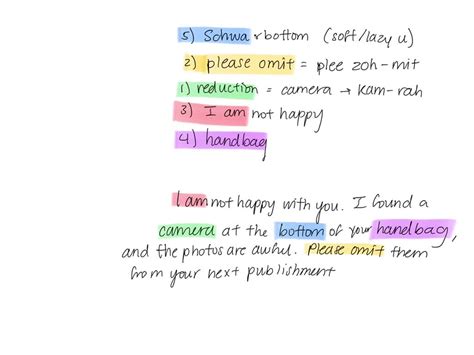 5) Schwa → bottom (soft/lazy u)
2) please omit = plee zoh-mit
1) reduction = camera → kam-rah
3) I am not happy
4) handbag
I am not happy with you. I found a
camera at the bottom of your handbag,
and the photos are awful. Please omit them
from your next publishment